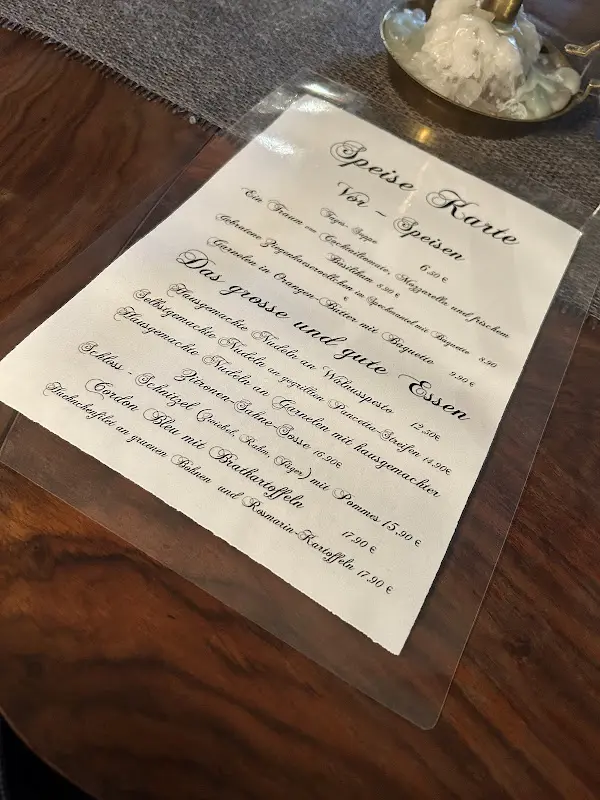 Speise Karte
Vor - Speisen
Tages-Suppe 6.50 €
Ein Traum von Cocktailtomate, Mozzarella und frischem
Basilikum 8.90 €
Gebratene Ziegenkaeseroellchen in Speckmantel mit Baguette 8.90
€
Garnelen in Orangen-Butter mit Baguette 9.90 €
Das grosse und gute Essen
Hausgemachte Nudeln an Walnusspesto 12.50€
Selbstgemachte Nudeln an gegrillten Pancetta-Streifen 14.90€
Hausgemachte Nudeln an Garnelen mit hausgemachter
Zitronen-Sahne-Sosse 16.90€
Schloss - Schnitzel (Zwiebel, Rahm, Jäger) mit Pommes 15,90 €
Cordon Bleu mit Bratkartoffeln 17.90 €
Huhnchenfilet an gruenen Bohnen und Rosmarin-Kartoffeln 17,90 €